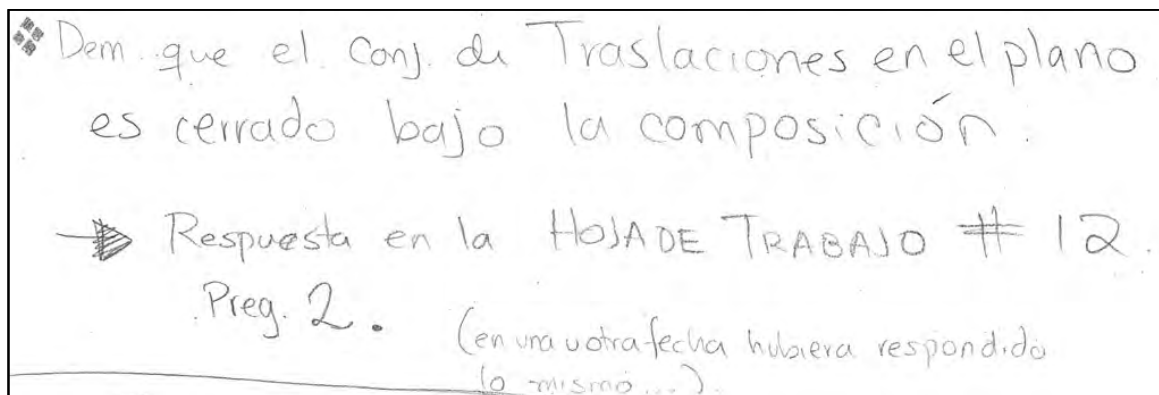 Dem. que el conj. de Traslaciones en el plano
es cerrado bajo la composición.
Respuesta en la HOJA DE TRABAJO # 12.
Preg. 2.
(en una u otra fecha hubiera respondido
lo mismo...).